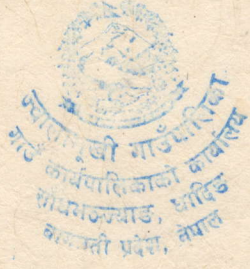 ज्वालामूखी गाउँपालिका
गाउँ कार्यपालिकाको कार्यालय
धादिङ
बागमती प्रदेश, नेपाल